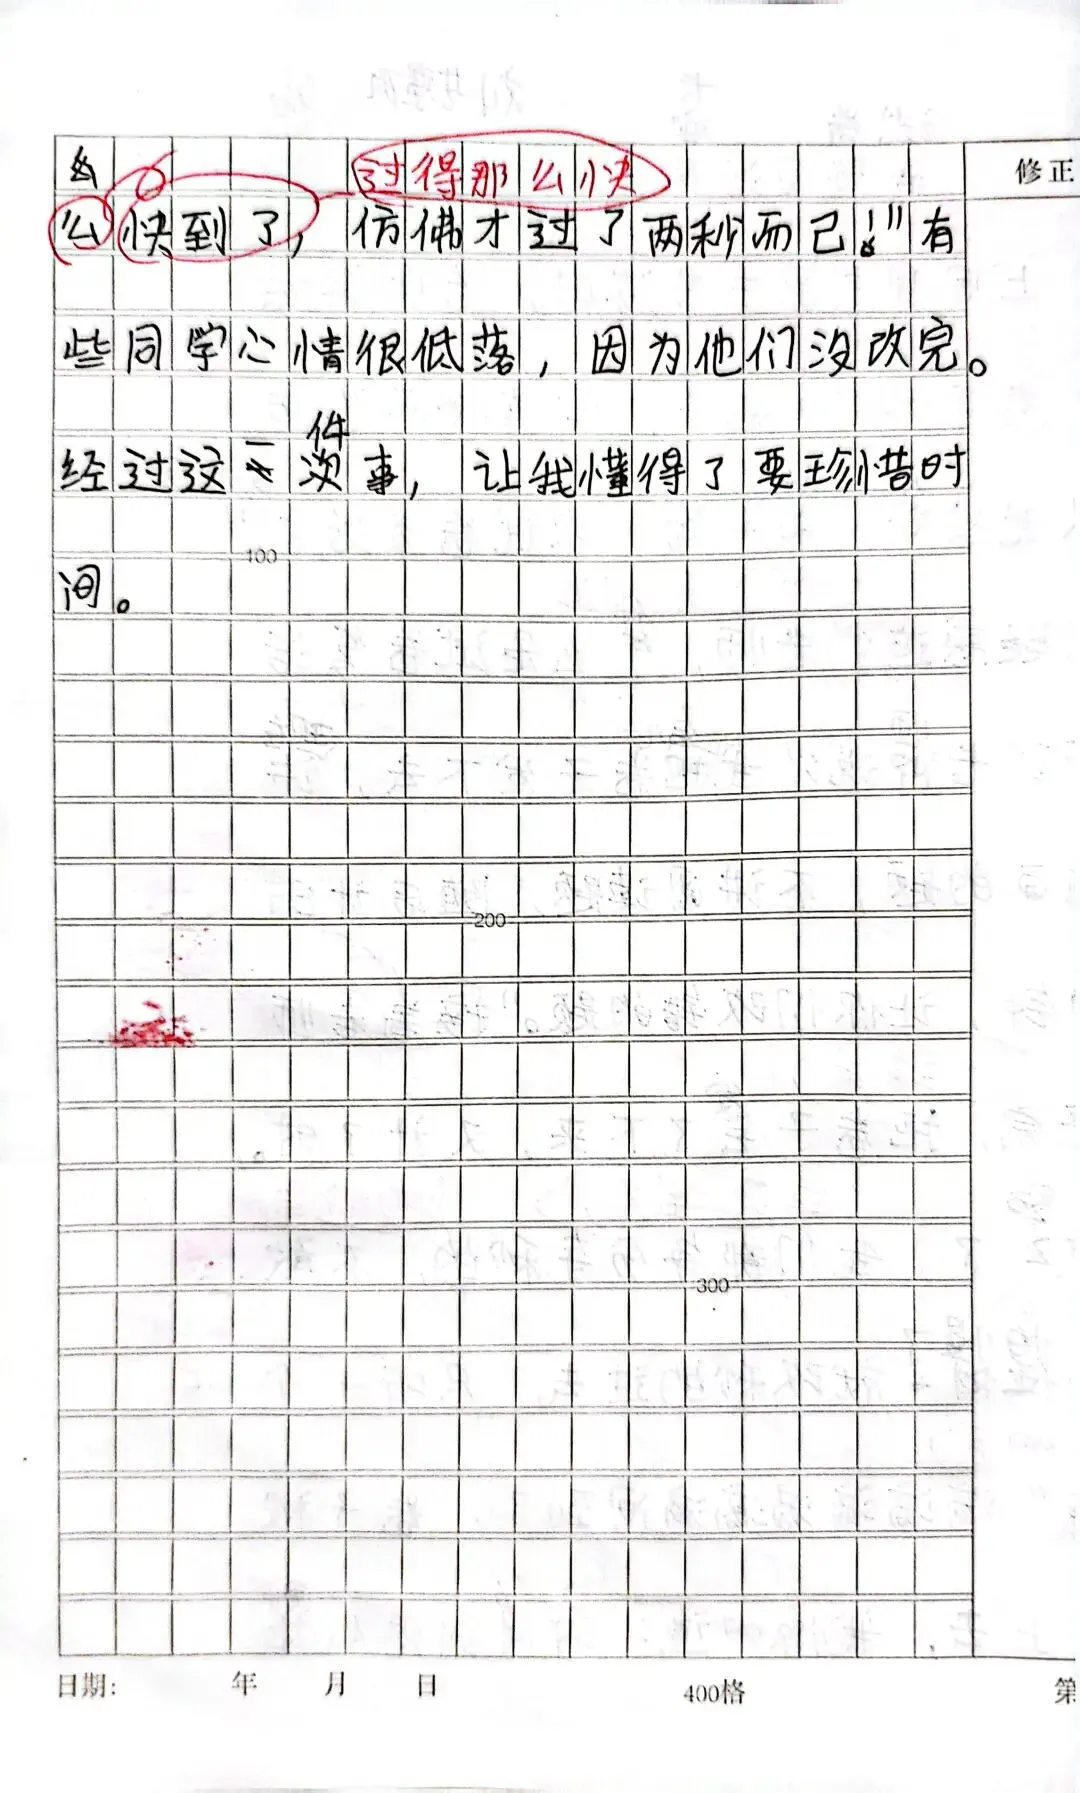 过得那么快
修正
么快到了，仿佛才过了两秒而已！”有
些同学心情很低落，因为他们没改完。
一件
经过这次事，让我懂得了要珍惜时
100
间。
200
300
日期： 年 月 日 400格 第